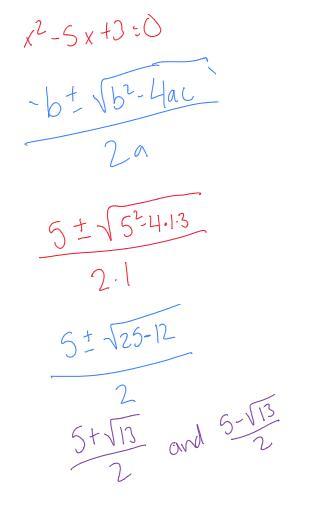 x² - 5x + 3 = 0
-b ± √(b² - 4ac)
2a
5 ± √(5² - 4·1·3)
2·1
5 ± √(25 - 12)
2
(5 + √13)/2 and (5 - √13)/2